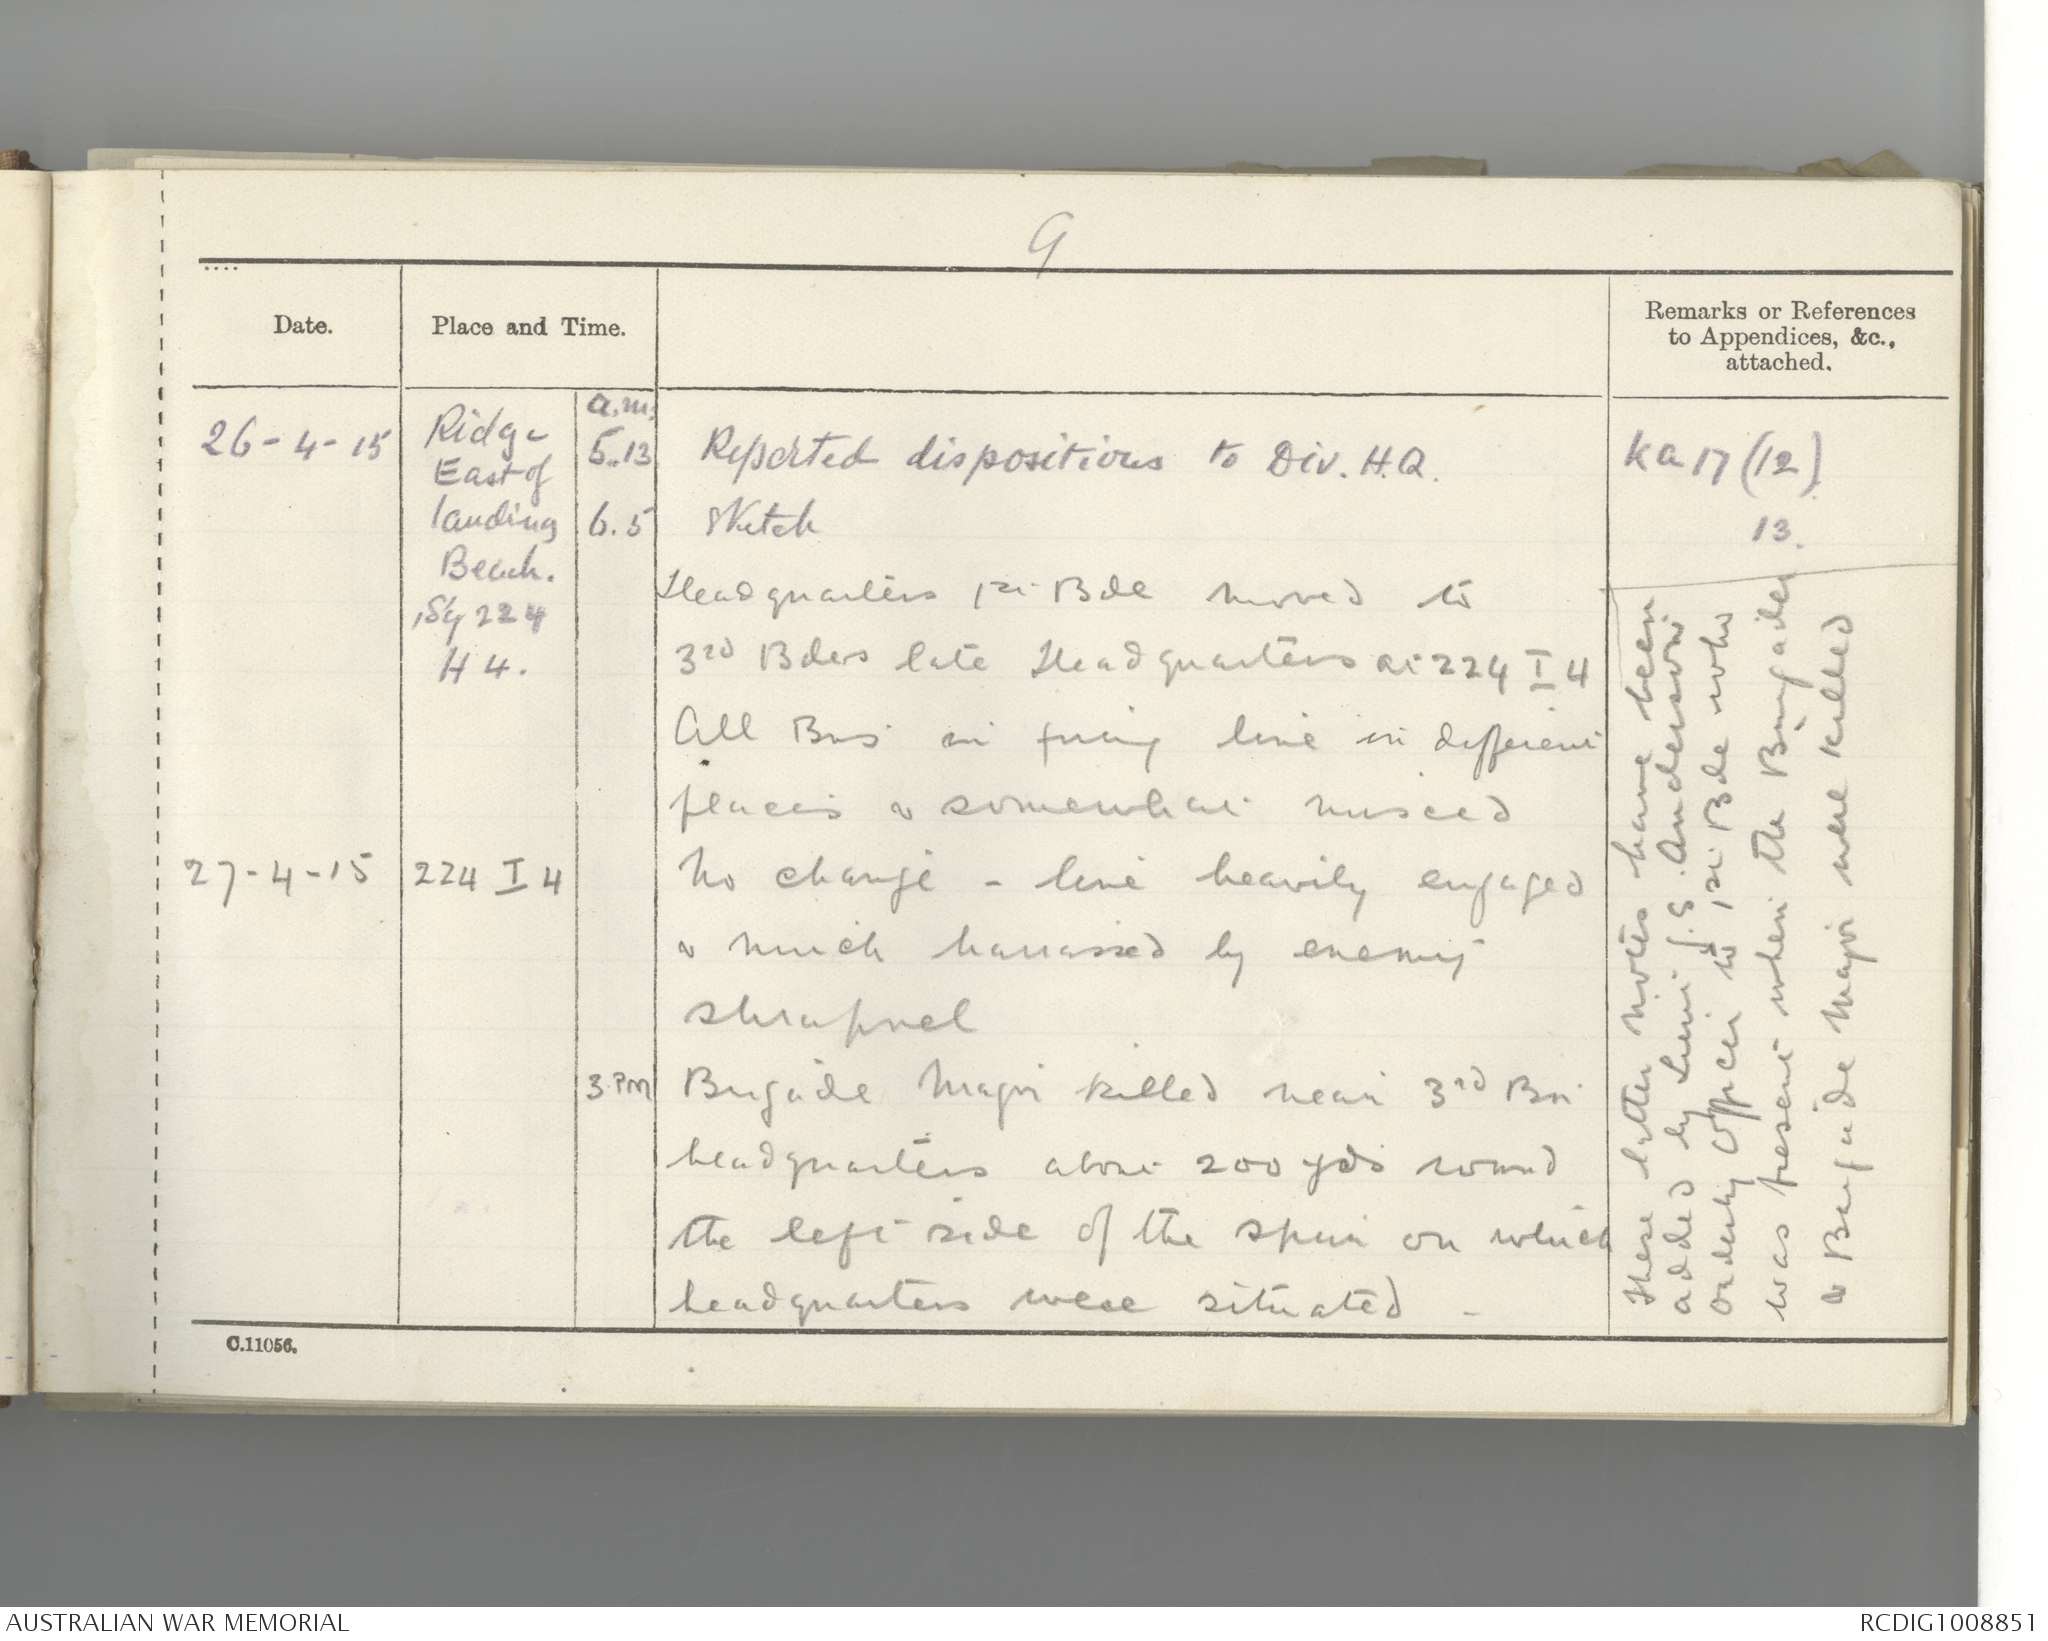 9
Date.
Place and Time.
Remarks or References
to Appendices, &c.,
attached.
26-4-15
Ridge
East of
landing
Beach.
Sq 224
H4.
a.m.
5.13
Reported dispositions to Div. H.Q.
Ka 17 (12)
6.5
Sketch
13.
Headquarters 1st Bde moved to
3rd Bdes late Headquarters at 224 I 4
All Bns in firing line in different
places & somewhat mixed
27-4-15
224 I 4
No change - line heavily engaged
& much harrassed by enemy
shrapnel
3 PM
Brigade Major killed near 3rd Bn
headquarters about 200 yds round
the left side of the spur on which
headquarters were situated -
These latter notes have been
added by Lieut J.S. Anderson
orderly officer to 1st Bde who
was present when the Brigadier
& Brigade Major were killed
C.11056.
AUSTRALIAN WAR MEMORIAL
RCDIG1008851